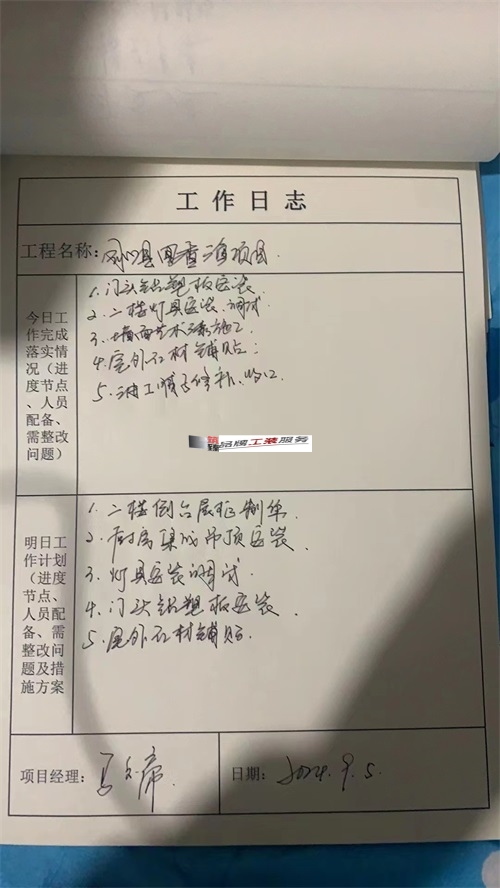 工作日志
工程名称: 县 项目
今日工作完成落实情况（进度节点、人员配备、需整改问题）
1. 门头铝塑板安装
2. 二楼灯具安装、调试
3. 墙面艺术漆施工
4. 屋外石材铺贴
5. 油工 修补、收口
品牌工装服务
明日工作计划（进度节点、人员配备、需整改问题及措施方案
1. 二楼 制作
2. 厨房集成吊顶安装
3. 灯具安装调试
4. 门头铝塑板安装
5. 屋外石材铺贴
项目经理:
日期: 2024.9.5.